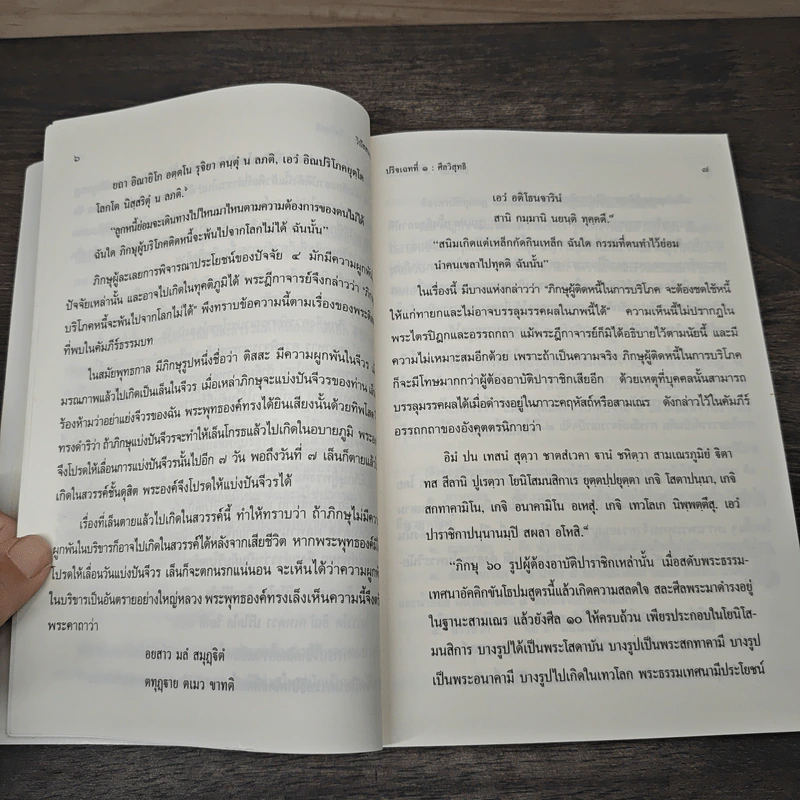 ๖
วิปัสสนา
ยถา อิณายิโก อตฺตโน รุจิยา คนฺตุํ น ลภติ, เอวํ อิณปริโภคยุตฺโต
โลกโต นิสฺสริตุํ น ลภติ.
“ลูกหนี้ย่อมจะเดินทางไปไหนมาไหนตามความต้องการของตนไม่ได้
ฉันใด ภิกษุผู้บริโภคติดหนี้จะพ้นไปจากโลกไม่ได้ ฉันนั้น”
ภิกษุผู้ละเลยการพิจารณาประโยชน์ของปัจจัย ๔ มักมีความผูกพัน
ปัจจัยเหล่านั้น และอาจไปเกิดในทุคติภูมิได้ พระฎีกาจารย์จึงกล่าวว่า
บริโภคหนี้จะพ้นไปจากโลกไม่ได้” พึงทราบข้อความนี้ตามเรื่องของพระ
ที่พบในคัมภีร์ธรรมบท
ในสมัยพุทธกาล มีภิกษุรูปหนึ่งชื่อว่า ติสสะ มีความผูกพันในจีวร
มรณภาพแล้วไปเกิดเป็นเล็นในจีวร เมื่อเหล่าภิกษุจะแบ่งปันจีวรของท่าน
ร้องห้ามว่าอย่าแย่งจีวรของฉัน พระพุทธองค์ทรงได้ยินเสียงนั้นด้วยทิพโสต
ทรงดำริว่า ถ้าภิกษุแบ่งปันจีวรจะทำให้เล็นโกรธแล้วไปเกิดในอบายภูมิ
จึงโปรดให้เลื่อนการแบ่งปันจีวรนั้นไปอีก ๗ วัน พอถึงวันที่ ๗ เล็นก็ตายแล้ว
เกิดในสวรรค์ชั้นดุสิต พระองค์จึงโปรดให้แบ่งปันจีวรได้
เรื่องที่เล็นตายแล้วไปเกิดในสวรรค์นี้ ทำให้ทราบว่า ถ้าภิกษุไม่มีความ
ผูกพันในบริขารก็อาจไปเกิดในสวรรค์ได้หลังจากเสียชีวิต หากพระพุทธองค์
โปรดให้เลื่อนวันแบ่งปันจีวร เล็นก็จะตกนรกแน่นอน จะเห็นได้ว่าความผูกพัน
ในบริขารเป็นอันตรายอย่างใหญ่หลวง พระพุทธองค์ทรงเล็งเห็นความนี้จึง
พระคาถาว่า
อยสาว มลํ สมุฏฺฐิตํ
ตทุฏฺฐาย ตเมว ขาทติ
ปริจเฉทที่ ๑ : ศีลวิสุทธิ
๗
เอวํ อติโธนจารินํ
สานิ กมฺมานิ นยนฺติ ทุคฺคตึ.
“สนิมเกิดแต่เหล็กกัดกินเหล็ก ฉันใด กรรมที่ตนทำไว้ย่อม
นำคนเขลาไปทุคติ ฉันนั้น”
ในเรื่องนี้ มีบางแห่งกล่าวว่า “ภิกษุผู้ติดหนี้ในการบริโภค จะต้องชดใช้หนี้
ให้แก่ทายกและไม่อาจบรรลุมรรคผลในภพนี้ได้” ความเห็นนี้ไม่ปรากฏใน
พระไตรปิฎกและอรรถกถา แม้พระฎีกาจารย์ก็มิได้อธิบายไว้ตามนัยนี้ และมี
ความไม่เหมาะสมอีกด้วย เพราะถ้าเป็นความจริง ภิกษุผู้ติดหนี้ในการบริโภค
ก็จะมีโทษมากกว่าผู้ต้องอาบัติปาราชิกเสียอีก ด้วยเหตุที่บุคคลนั้นสามารถ
บรรลุมรรคผลได้เมื่อดำรงอยู่ในภาวะคฤหัสถ์หรือสามเณร ดังกล่าวไว้ในคัมภีร์
อรรถกถาของอังคุตตรนิกายว่า
อิมํ ปน เทสนํ สุตฺวา ชาตสํเวคา ฐานํ ชหิตฺวา สามเณรภูมิยํ ฐิตา
ทส สีลานิ ปูเรตฺวา โยนิโสมนสิกาเร ยุตฺตปฺปยุตฺตา เกจิ โสตาปนฺนา, เกจิ
สกทาคามิโน, เกจิ อนาคามิโน อเหสุํ. เกจิ เทวโลเก นิพฺพตฺตึสุ. เอวํ
ปาราชิกาปนฺนานมฺปิ สผลา อโหสิ.
“ภิกษุ ๖๐ รูปผู้ต้องอาบัติปาราชิกเหล่านั้น เมื่อสดับพระธรรม-
เทศนาอัคคิกขันโธปมสูตรนี้แล้วเกิดความสลดใจ สละศีลพระมาดำรงอยู่
ในฐานะสามเณร แล้วยังศีล ๑๐ ให้ครบถ้วน เพียรประกอบในโยนิโส-
มนสิการ บางรูปได้เป็นพระโสดาบัน บางรูปเป็นพระสกทาคามี บางรูป
เป็นพระอนาคามี บางรูปไปเกิดในเทวโลก พระธรรมเทศนามีประโยชน์